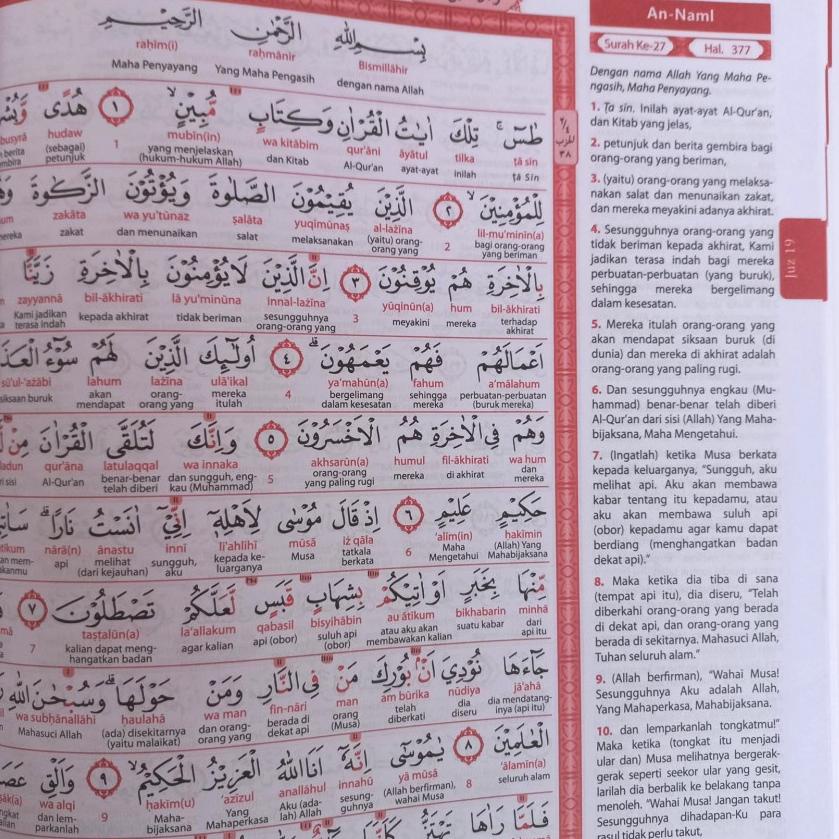 بِسْمِ اللّٰهِ الرَّحْمٰنِ الرَّحِيْمِ
Bismillāhir raḥmānir raḥīm(i)
dengan nama Allah Yang Maha Pengasih Maha Penyayang
طٰسۤ ۚ تِلْكَ اٰيٰتُ الْقُرْاٰنِ وَكِتَابٍ مُّبِيْنٍ ۙ ١ هُدًى
ṭā sīn tilka āyātul qur'āni wa kitābim mubīn(in) hudaw
ṭā Sīn inilah ayat-ayat Al-Qur'an dan Kitab yang menjelaskan 1 (sebagai)
(hukum-hukum Allah) petunjuk
لِلْمُؤْمِنِيْنَ ۙ ٢ الَّذِيْنَ يُقِيْمُوْنَ الصَّلٰوةَ وَيُؤْتُوْنَ الزَّكٰوةَ
lil-mu'minīn(a) al-lażīna yuqīmūnaṣ ṣalāta wa yu'tūnaz zakāta
bagi orang-orang 2 (yaitu) orang- melaksanakan salat dan menunaikan zakat
yang beriman orang yang
بِالْاٰخِرَةِ هُمْ يُوْقِنُوْنَ ٣ اِنَّ الَّذِيْنَ لَا يُؤْمِنُوْنَ بِالْاٰخِرَةِ زَيَّنَّا
bil-ākhirati hum yūqinūn(a) innal-lażīna lā yu'minūna bil-ākhirati zayyannā
terhadap mereka meyakini 3 sesungguhnya tidak beriman kepada akhirat Kami jadikan
akhirat orang-orang yang terasa indah
اَعْمَالَهُمْ فَهُمْ يَعْمَهُوْنَ ۗ ٤ اُولٰۤىِٕكَ الَّذِيْنَ لَهُمْ سُوْۤءُ
a'mālahum fahum ya'mahūn(a) ulā'ikal lażīna lahum sū'ul-'ażābi
perbuatan-perbuatan sehingga bergelimang 4 mereka orang- akan siksaan buruk
(buruk mereka) mereka dalam kesesatan itulah orang yang mendapat
وَهُمْ فِى الْاٰخِرَةِ هُمُ الْاَخْسَرُوْنَ ٥ وَاِنَّكَ لَتُلَقَّى الْقُرْاٰنَ مِنْ
wa hum fil-ākhirati humul akhsarūn(a) wa innaka latulaqqal qur'āna
dan di akhirat mereka orang-orang 5 dan sungguh, eng- benar-benar Al-Qur'an
mereka yang paling rugi kau (Muhammad) telah diberi
حَكِيْمٍ عَلِيْمٍ ٦ اِذْ قَالَ مُوْسٰى لِاَهْلِهٖٓ اِنِّيْٓ اٰنَسْتُ نَارًا ۗ
ḥakīmin 'alīm(in) iż qāla mūsā li'ahlihī innī ānastu nārā(n)
(Allah) Yang Maha 6 tatkala Musa kepada ke- sungguh, melihat api
Mahabijaksana Mengetahui berkata luarganya aku (dari kejauhan)
مِّنْهَا بِخَبَرٍ اَوْ اٰتِيْكُمْ بِشِهَابٍ قَبَسٍ لَّعَلَّكُمْ تَصْطَلُوْنَ ٧
minhā bikhabarin au ātīkum bisyihābin qabasil la'allakum taṣṭalūn(a)
dari suatu kabar atau aku akan suluh api api (obor) agar kalian kalian dapat meng- 7
api itu membawakan kalian (obor) hangatkan badan
جَاۤءَهَا نُوْدِيَ اَنْۢ بُوْرِكَ مَنْ فِى النَّارِ وَمَنْ حَوْلَهَاۗ وَسُبْحٰنَ اللّٰهِ
jā'ahā nūdiya am būrika man fin-nāri wa man ḥaulahā wa subḥānallāhi
dia mendatang- dia telah orang berada di dan orang- (ada) disekitarnya Mahasuci Allah
inya (api itu) diseru diberkati (Musa) dekat api orang yang (yaitu malaikat)
الْعٰلَمِيْنَ ٨ يٰمُوْسٰٓى اِنَّهٗٓ اَنَا اللّٰهُ الْعَزِيْزُ الْحَكِيْمُ ۙ ٩ وَاَلْقِ
'ālamīn(a) yā mūsā innahū anallāhul 'azīzul ḥakīm(u) wa alqi
seluruh alam 8 (Allah berfirman), sesung- Aku (ada- Yang Maha- 9 dan lem-
wahai Musa guhnya lah) Allah Mahaperkasa bijaksana parkanlah
فَلَمَّا رَاٰهَا تَهْتَزُّ
An-Naml
Surah Ke-27
Hal. 377
Dengan nama Allah Yang Maha Pe-
ngasih, Maha Penyayang.
1. Ṭa sīn. Inilah ayat-ayat Al-Qur'an,
dan Kitab yang jelas,
2. petunjuk dan berita gembira bagi
orang-orang yang beriman,
3. (yaitu) orang-orang yang melaksa-
nakan salat dan menunaikan zakat,
dan mereka meyakini adanya akhirat.
4. Sesungguhnya orang-orang yang
tidak beriman kepada akhirat, Kami
jadikan terasa indah bagi mereka
perbuatan-perbuatan (yang buruk),
sehingga mereka bergelimang
dalam kesesatan.
5. Mereka itulah orang-orang yang
akan mendapat siksaan buruk (di
dunia) dan mereka di akhirat adalah
orang-orang yang paling rugi.
6. Dan sesungguhnya engkau (Mu-
hammad) benar-benar telah diberi
Al-Qur'an dari sisi (Allah) Yang Maha-
bijaksana, Maha Mengetahui.
7. (Ingatlah) ketika Musa berkata
kepada keluarganya, "Sungguh, aku
melihat api. Aku akan membawa
kabar tentang itu kepadamu, atau
aku akan membawa suluh api
(obor) kepadamu agar kamu dapat
berdiang (menghangatkan badan
dekat api)."
8. Maka ketika dia tiba di sana
(tempat api itu), dia diseru, "Telah
diberkahi orang-orang yang berada
di dekat api, dan orang-orang yang
berada di sekitarnya. Mahasuci Allah,
Tuhan seluruh alam."
9. (Allah berfirman), "Wahai Musa!
Sesungguhnya Aku adalah Allah,
Yang Mahaperkasa, Mahabijaksana.
10. dan lemparkanlah tongkatmu!"
Maka ketika (tongkat itu menjadi
ular dan) Musa melihatnya bergerak-
gerak seperti seekor ular yang gesit,
larilah dia berbalik ke belakang tanpa
menoleh. "Wahai Musa! Jangan takut!
Sesungguhnya dihadapan-Ku para
rasul tidak perlu takut,
Juz 19